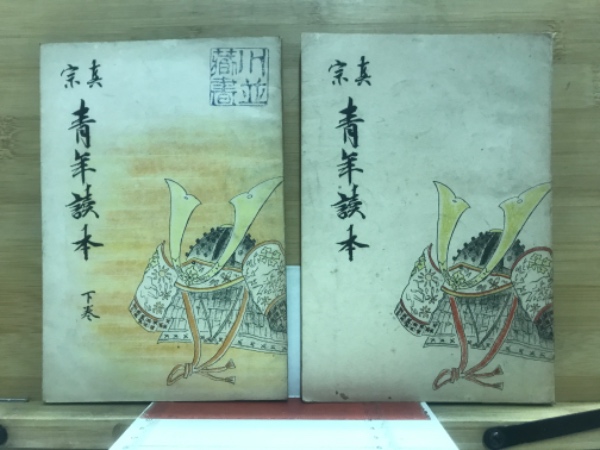 真宗
青年讀本
下巻
川並
藏書
真宗
青年讀本